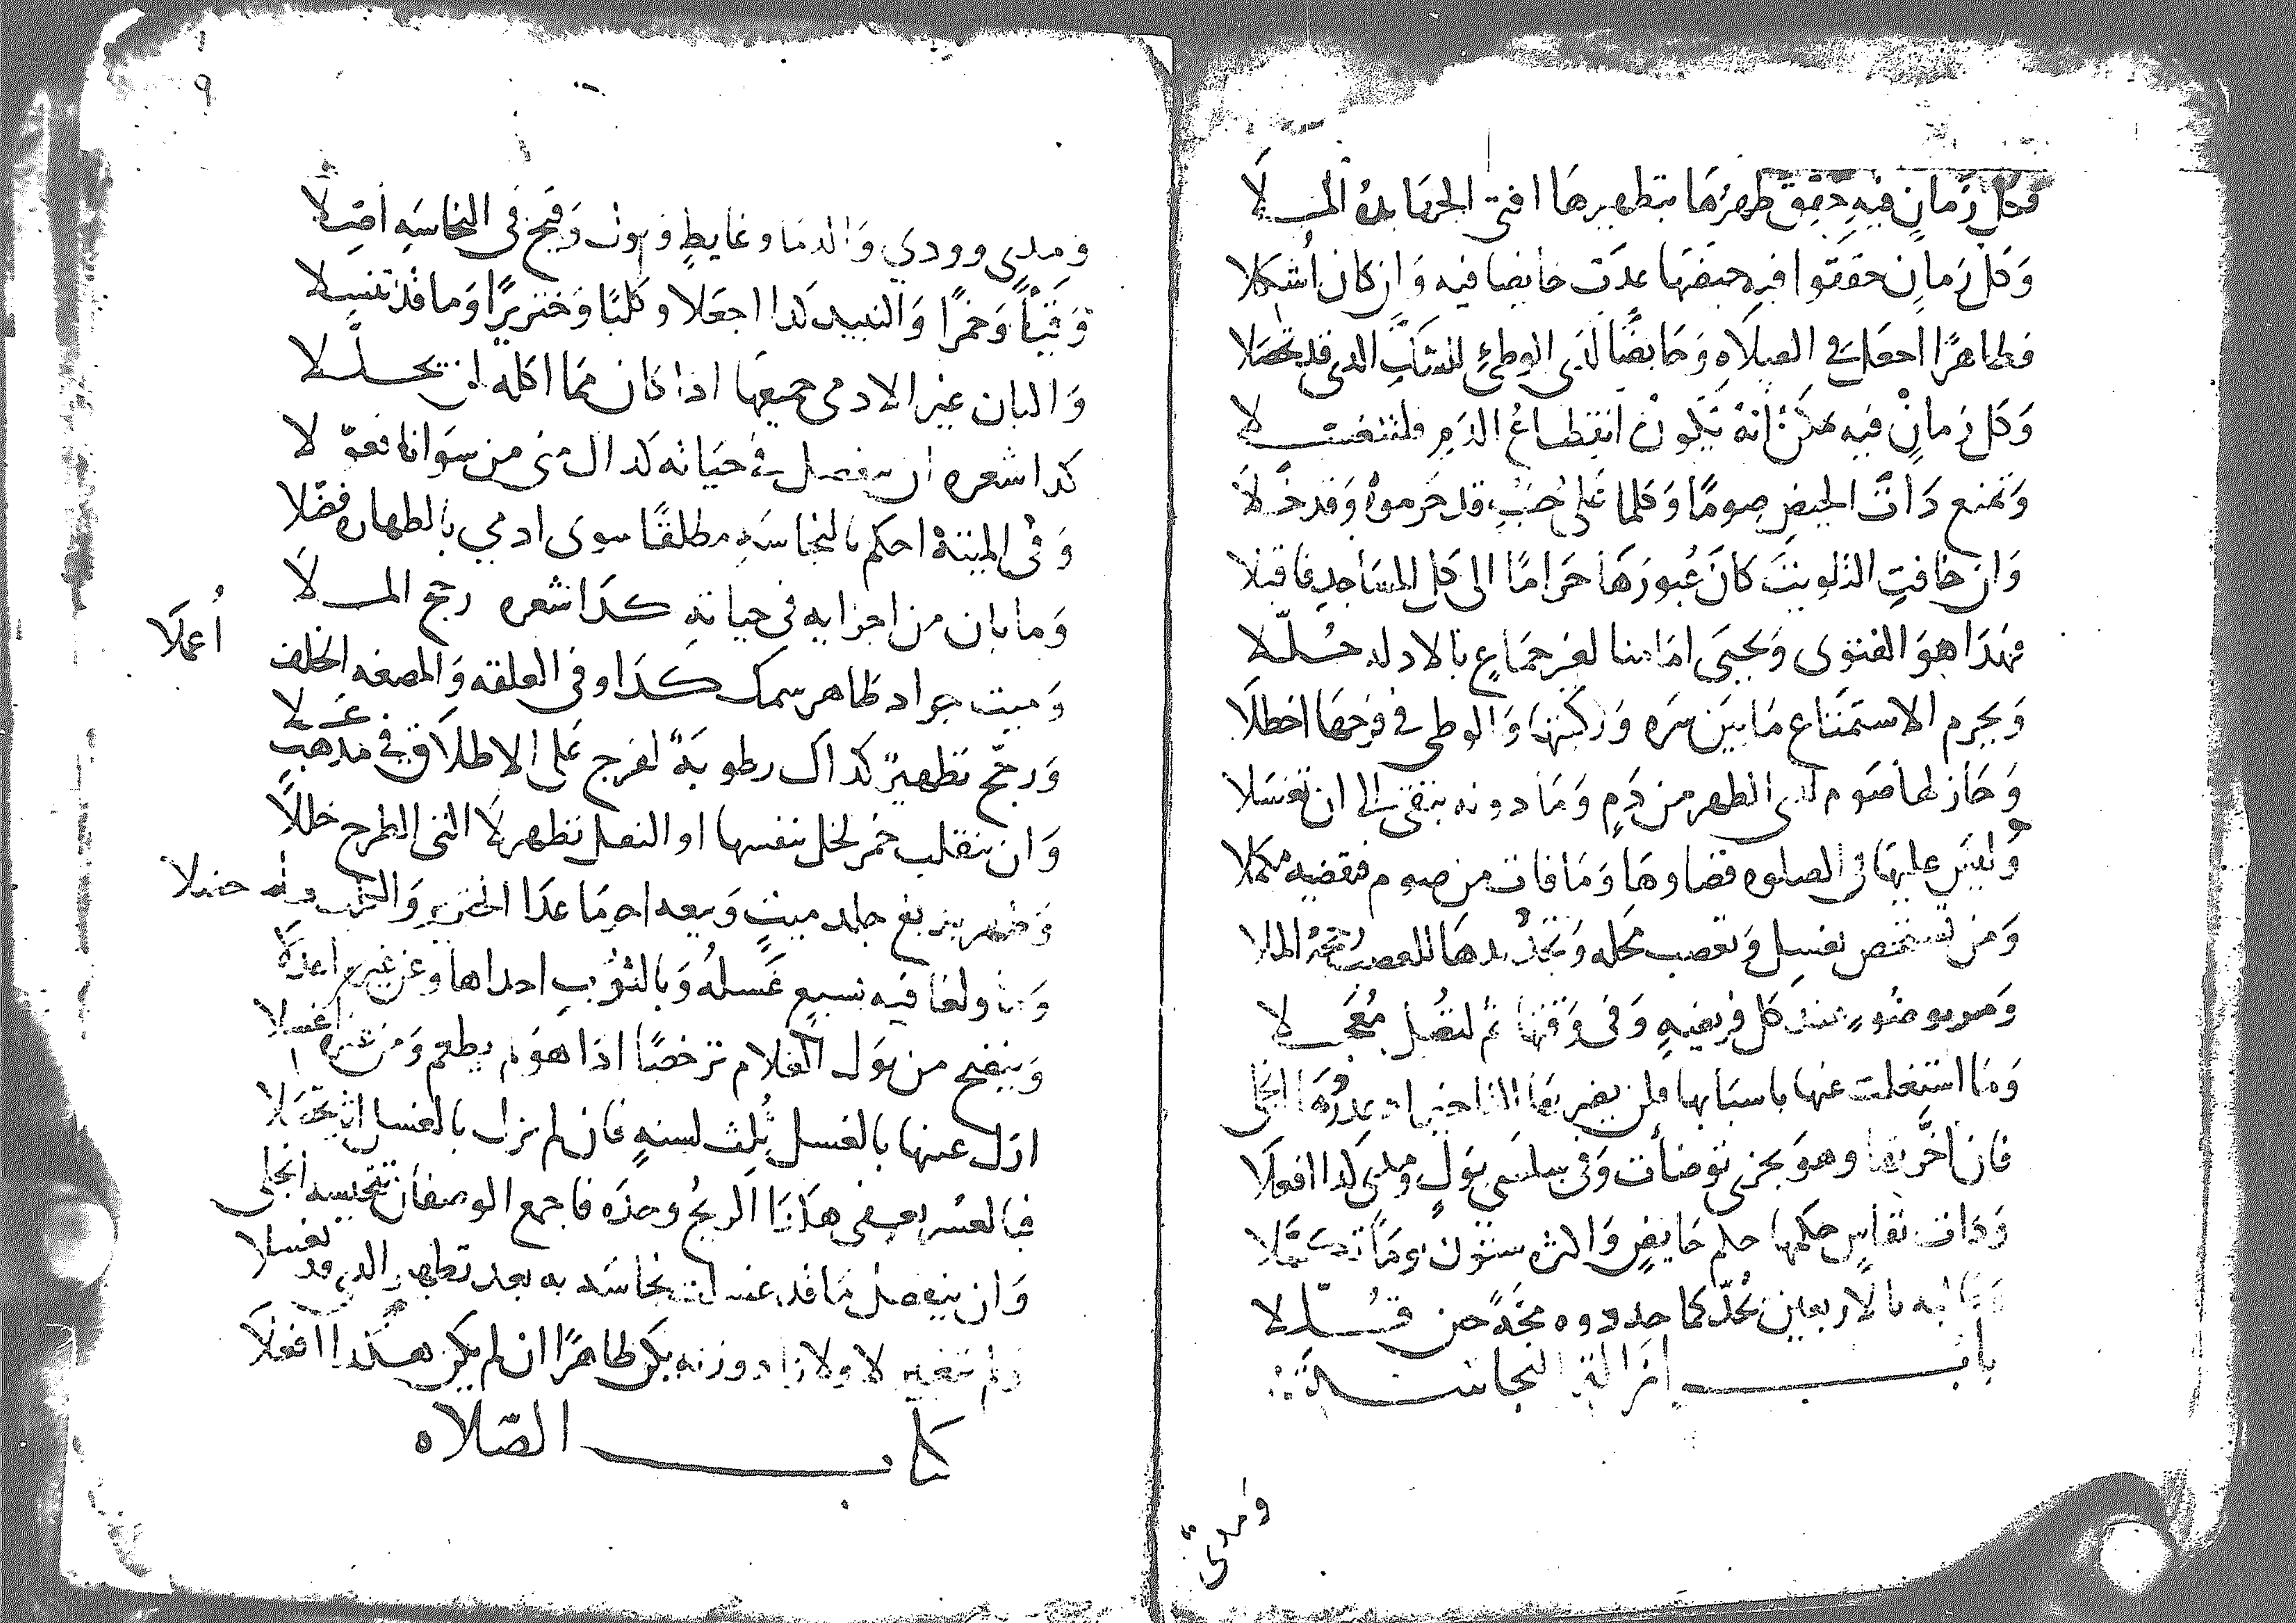 وَكل زَمانٍ فيهِ حقق طهرها بتطهيرها افتى الجهابذة الملا
وَكل زمانٍ حققوا فيه حيضها عدت حايضا فيه وَان كان أشكلا
فطاهرًا اجعل في الصلاه وَحايضًا لدى الوطئِ للشك الدى قد تحصلا
وَكل زمانٍ فيه ممكن انه يكون انقطاعُ الدمِ فلتغتسلا
وَتمنع ذات الحيض صومًا وَكلما على جنبٍ قد حرموهُ وَقد خلا
وَان خافت التلويث كانَ عُبورهَا حَرامًا الى كل المسَاجد فاقبلا
فهذا هوَ الفتوى وَيحيى امَامنا لغير جمَاعٍ بالادله حُلّلا
وَيحرم الاستمتاع مَا بين سره وَركبتها وَالوطى في فرجهَا اخطلا
وَجَاز لها صَوم لدى الطهر من دَمٍ وَمَا دونه ينفى الى ان تغسَلا
وَليس عليهَا فى الصلوه قضاوهَا وَمَا فات من صوم فتقضيه مكملا
وَمن تستحض تغسل وَتعصب محله وَتجديدها للعصب رجحه الملا
وَضو عند كل فريضهٍ وَفى وَقتها ثم لتصل مُعجلا
وَمَا اشتغلت عنها باسبَابها فلن يضر بها التاخير اد عذرها انجلى
فان اخَّرتها وهوَ يجزى توضأت وَفى سلسى بَولٍ ومدى كدا افعلا
وَدات نفاسٍ حكمها حكم حَايضٍ وَاكثره ستون يومًا تكمّلا
وَغالبه بالاربعين يُحدّ كما حددوه مجَّةً حين قُلّلا
بابـــ ازالة النجاسة
وَمدى

٩
وَمدىٍ وودىٍ وَالدمَا وغايطٍ وبولٍ وَقيحٍ فى النجاسَه اصّلا
وَقيئًا وَخمرًا وَالنبيد كدا اجعَلا وكلبًا وَخنزيرًا وَما قد تنسلا
وَالبان غير الادمى جميعهَا ادا كان مما اكله لن يحلّلا
كدا شعره ان ينفصل فى حيَاته كدا المنى من سوَانا تعوّلا
وَفى الميتة احكم بالنجاسَهِ مطلقًا سوى ادمي بالطهاره فضّلا
وَما بان من اجزايه فى حياتهِ كدا شعره رجح الملا
وَميت جراد طاهر سمك كدا وفى العلقه وَالمضغه الخلف أُعملا
وَرجّح تطهيرٌ كداك رطوبَةٌ لفرج عَلى الاطلاق في مذهب عَلا
وَان ينقلب خمر لخل بنفسها او النقل تطهر لا التى الطرح خللًا
وَطهر بدبغ جلد ميتٍ وَبيعه اجز مَا عدَا الخنزير وَالكلب
وَما ولغا فيه بسبعٍ غَسلهُ وَبالتربِ احداها وعن غيره اعدلا
وَينضح من بَول الغلام ترخصًا ادا هوَ لم يطعم وَمن غيره اغسلا
ازل عينها بالغسل ثُلث لسنةٍ فان لم تزل بالغسل اثر تحمّلا
فبالعسر يعفى هكذا الريحُ وحدَه فاجمع الوصفان تنجيسه انجلى
وَان ينفصل مَا قد غسلت نجاسَه به بعد تطهير الدي قد تغسلا
وَلم يتغير لا ولا زاد وزنه يكن طاهرًا ان لم يكن هكذا افعَلا
كتابـــ الصّلاه